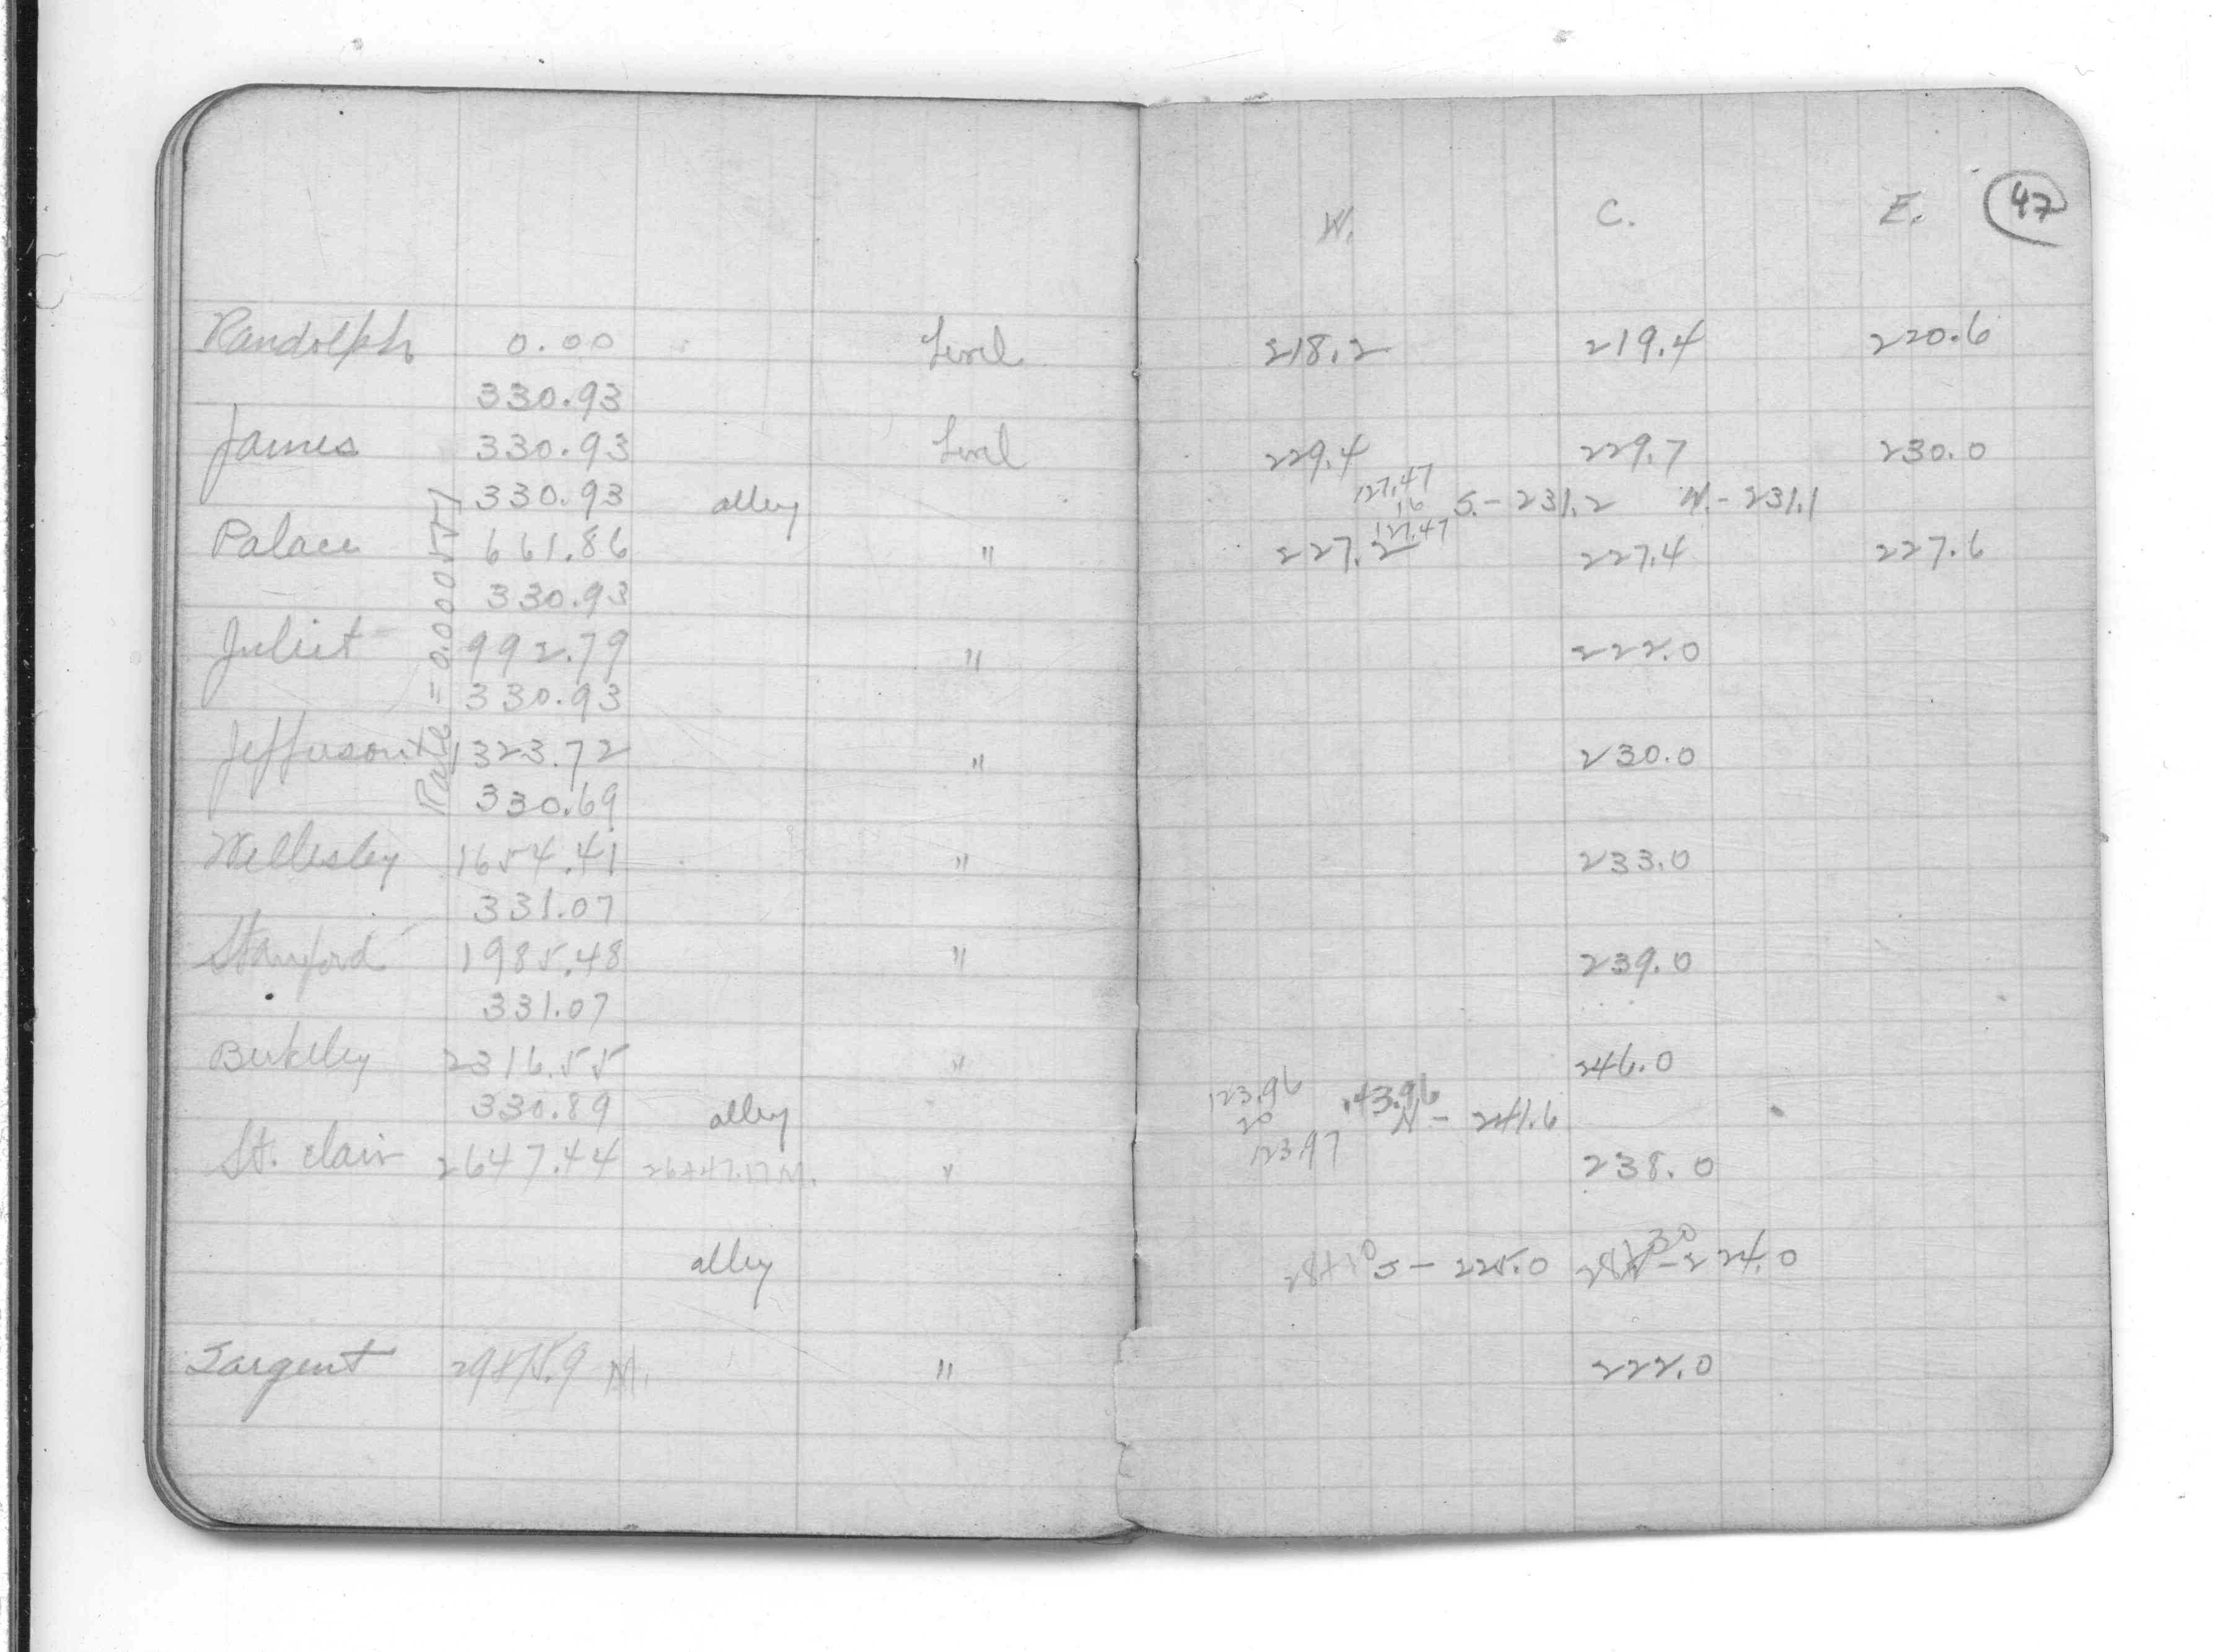 W. C. E. 47
Randolph 0.00 Level 218.2 219.4 220.6
330.93
James 330.93 Level 229.4 229.7 230.0
330.93 alley 127.47 16 127.47 S.- 231.2 N.- 231.1
Palace 661.86 " 227.2 227.4 227.6
330.93
Juliet 992.79 " 222.0
330.93
Jefferson 1323.72 " 230.0
330.69
Rate = 0.000557
Wellesley 1654.41 " 233.0
331.07
Stanford 1985.48 " 239.0
331.07
Berkeley 2316.55 " 246.0
330.89 alley 123.96 20 123.97 143.96 N - 241.6
St. Clair 2647.44 " 238.0
alley S - 225.0 - 224.0
Sargent M. " 222.0